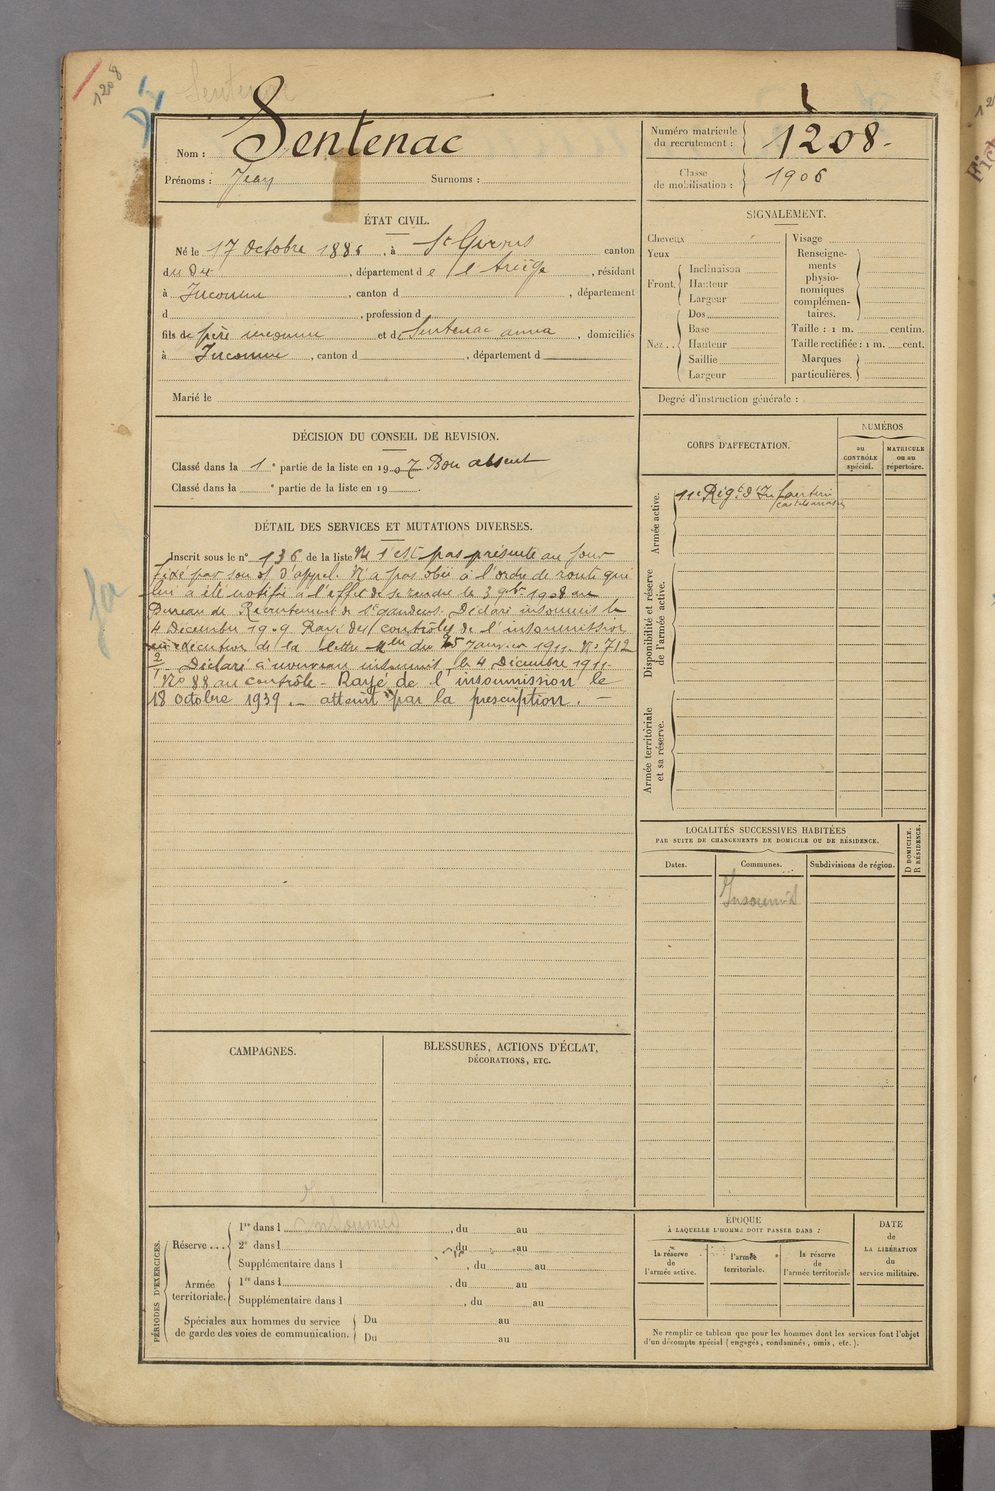 1208
Sentenac
Nom : Sentenac
Prénoms : Jean Surnoms :
Numéro matricule du recrutement : 1208.
Classe de mobilisation : 1906
ÉTAT CIVIL.
Né le 17 Octobre 1886, à St Girons canton
du dit, département de l'Ariège, résidant
à Inconnu, canton d , département
d , profession d
fils de père inconnu et d Sentenac anna, domiciliés
à Inconnu, canton d , département d
Marié le
SIGNALEMENT.
Cheveux
Yeux
Front. Inclinaison
Hauteur
Largeur
Nez .. Dos
Base
Hauteur
Saillie
Largeur
Visage
Renseigne-
ments
physio-
nomiques
complémen-
taires.
Taille : 1 m. centim.
Taille rectifiée : 1 m. cent.
Marques
particulières.
Degré d'instruction générale :
DÉCISION DU CONSEIL DE REVISION.
Classé dans la 1e partie de la liste en 1907 Bon absent
Classé dans la e partie de la liste en 19 .
DÉTAIL DES SERVICES ET MUTATIONS DIVERSES.
Inscrit sous le n° 136 de la liste Ne s'est pas présenté au jour
fixé par son o/ d'appel. N'a pas obéi à l'ordre de route qui
lui a été notifié à l'effet de se rendre le 3 9bre 1908 au
Bureau de Recrutement de St Gaudens. Déclaré insoumis le
4 Décembre 1909 Rayé des contrôles de l'insoumission
en exécution de la lettre Mlle du 25 Janvier 1911. No 712
2/1 Déclaré à nouveau insoumis, le 4 Décembre 1911.
No 88 au contrôle - Rayé de l'insoumission le
18 octobre 1939 . - atteint par la prescription. -
CORPS D'AFFECTATION.
NUMÉROS
au
CONTRÔLE
spécial.
MATRICULE
ou au
répertoire.
Armée active.
11e Régt d'Infanterie
Disponibilité et réserve
de l'armée active.
Armée territoriale
et sa réserve.
LOCALITÉS SUCCESSIVES HABITÉES
PAR SUITE DE CHANGEMENTS DE DOMICILE OU DE RÉSIDENCE.
Dates. Communes. Subdivisions de région.
D DOMICILE.
R RÉSIDENCE.
Insoumis
CAMPAGNES.
BLESSURES, ACTIONS D'ÉCLAT,
DÉCORATIONS, ETC.
PÉRIODES D'EXERCICES.
Réserve ... 1re dans l Insoumis , du au
2e dans l , du au
Supplémentaire dans l , du au
Armée
territoriale. 1re dans l , du au
Supplémentaire dans l , du au
Spéciales aux hommes du service
de garde des voies de communication. Du au
Du au
ÉPOQUE
À LAQUELLE L'HOMME DOIT PASSER DANS :
la réserve
de
l'armée active.
l'armée
territoriale.
la réserve
de
l'armée territoriale
DATE
de
LA LIBÉRATION
du
service militaire.
Ne remplir ce tableau que pour les hommes dont les services font l'objet
d'un décompte spécial (engagés, condamnés, omis, etc.).